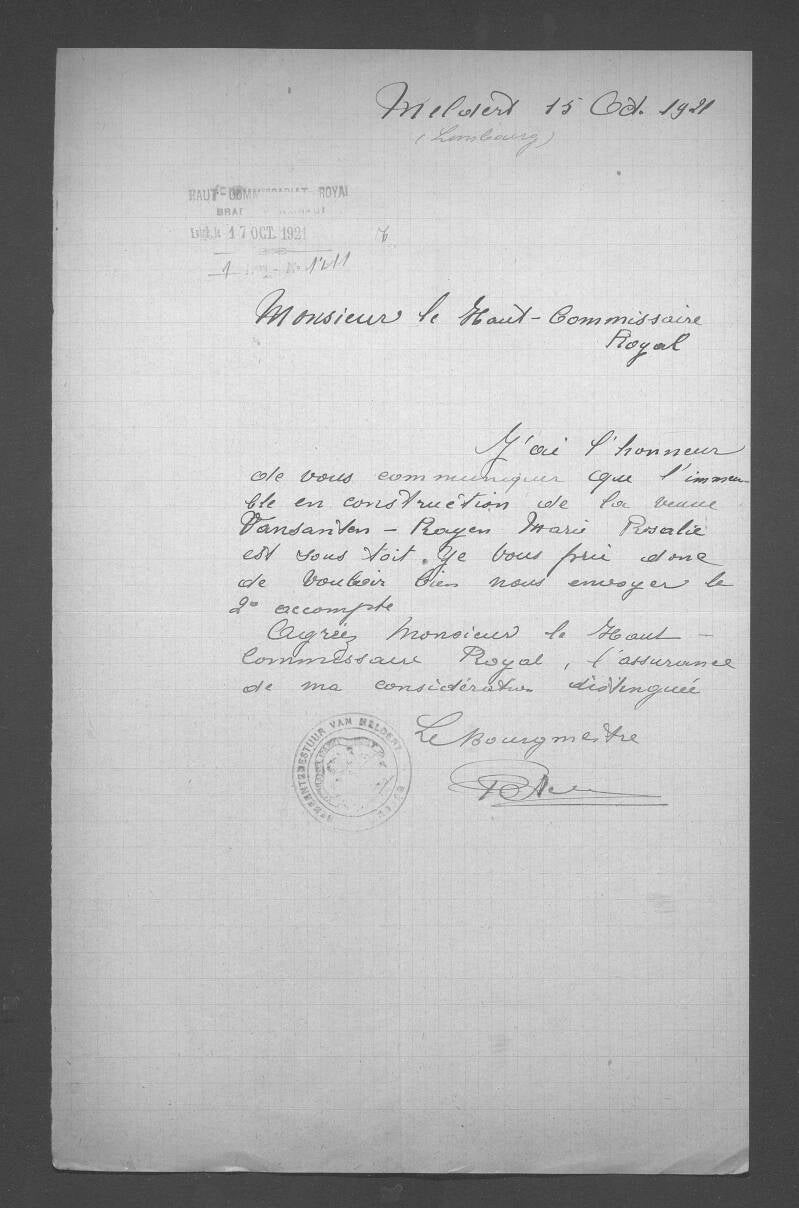 Meldert 15 Oct. 1921
(Limbourg)
HAUT-COMMISSARIAT ROYAL
17 OCT. 1921
Monsieur le Haut-Commissaire
Royal
J'ai l'honneur
de vous communiquer que l'immeu-
ble en construction de la veuve
Vansanten - Royen Marie Rosalie
est sous toit. Je vous prie donc
de vouloir bien nous envoyer le
2º accompte
Agréez Monsieur le Haut -
Commissaire Royal, l'assurance
de ma considération distinguée
Le Bourgmestre
GEMEENTEBESTUUR VAN MELDERT